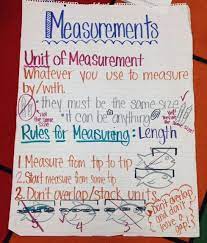 Measurements
Unit of Measurement
Whatever you use to measure
by/with.
they must be the same size
it can be anything
Rules for Measuring: Length
1. Measure from tip to tip
2. Start measure from same tip
3. Don't overlap/stack units
Don't overlap
and don't
leave a
gap.
3
4